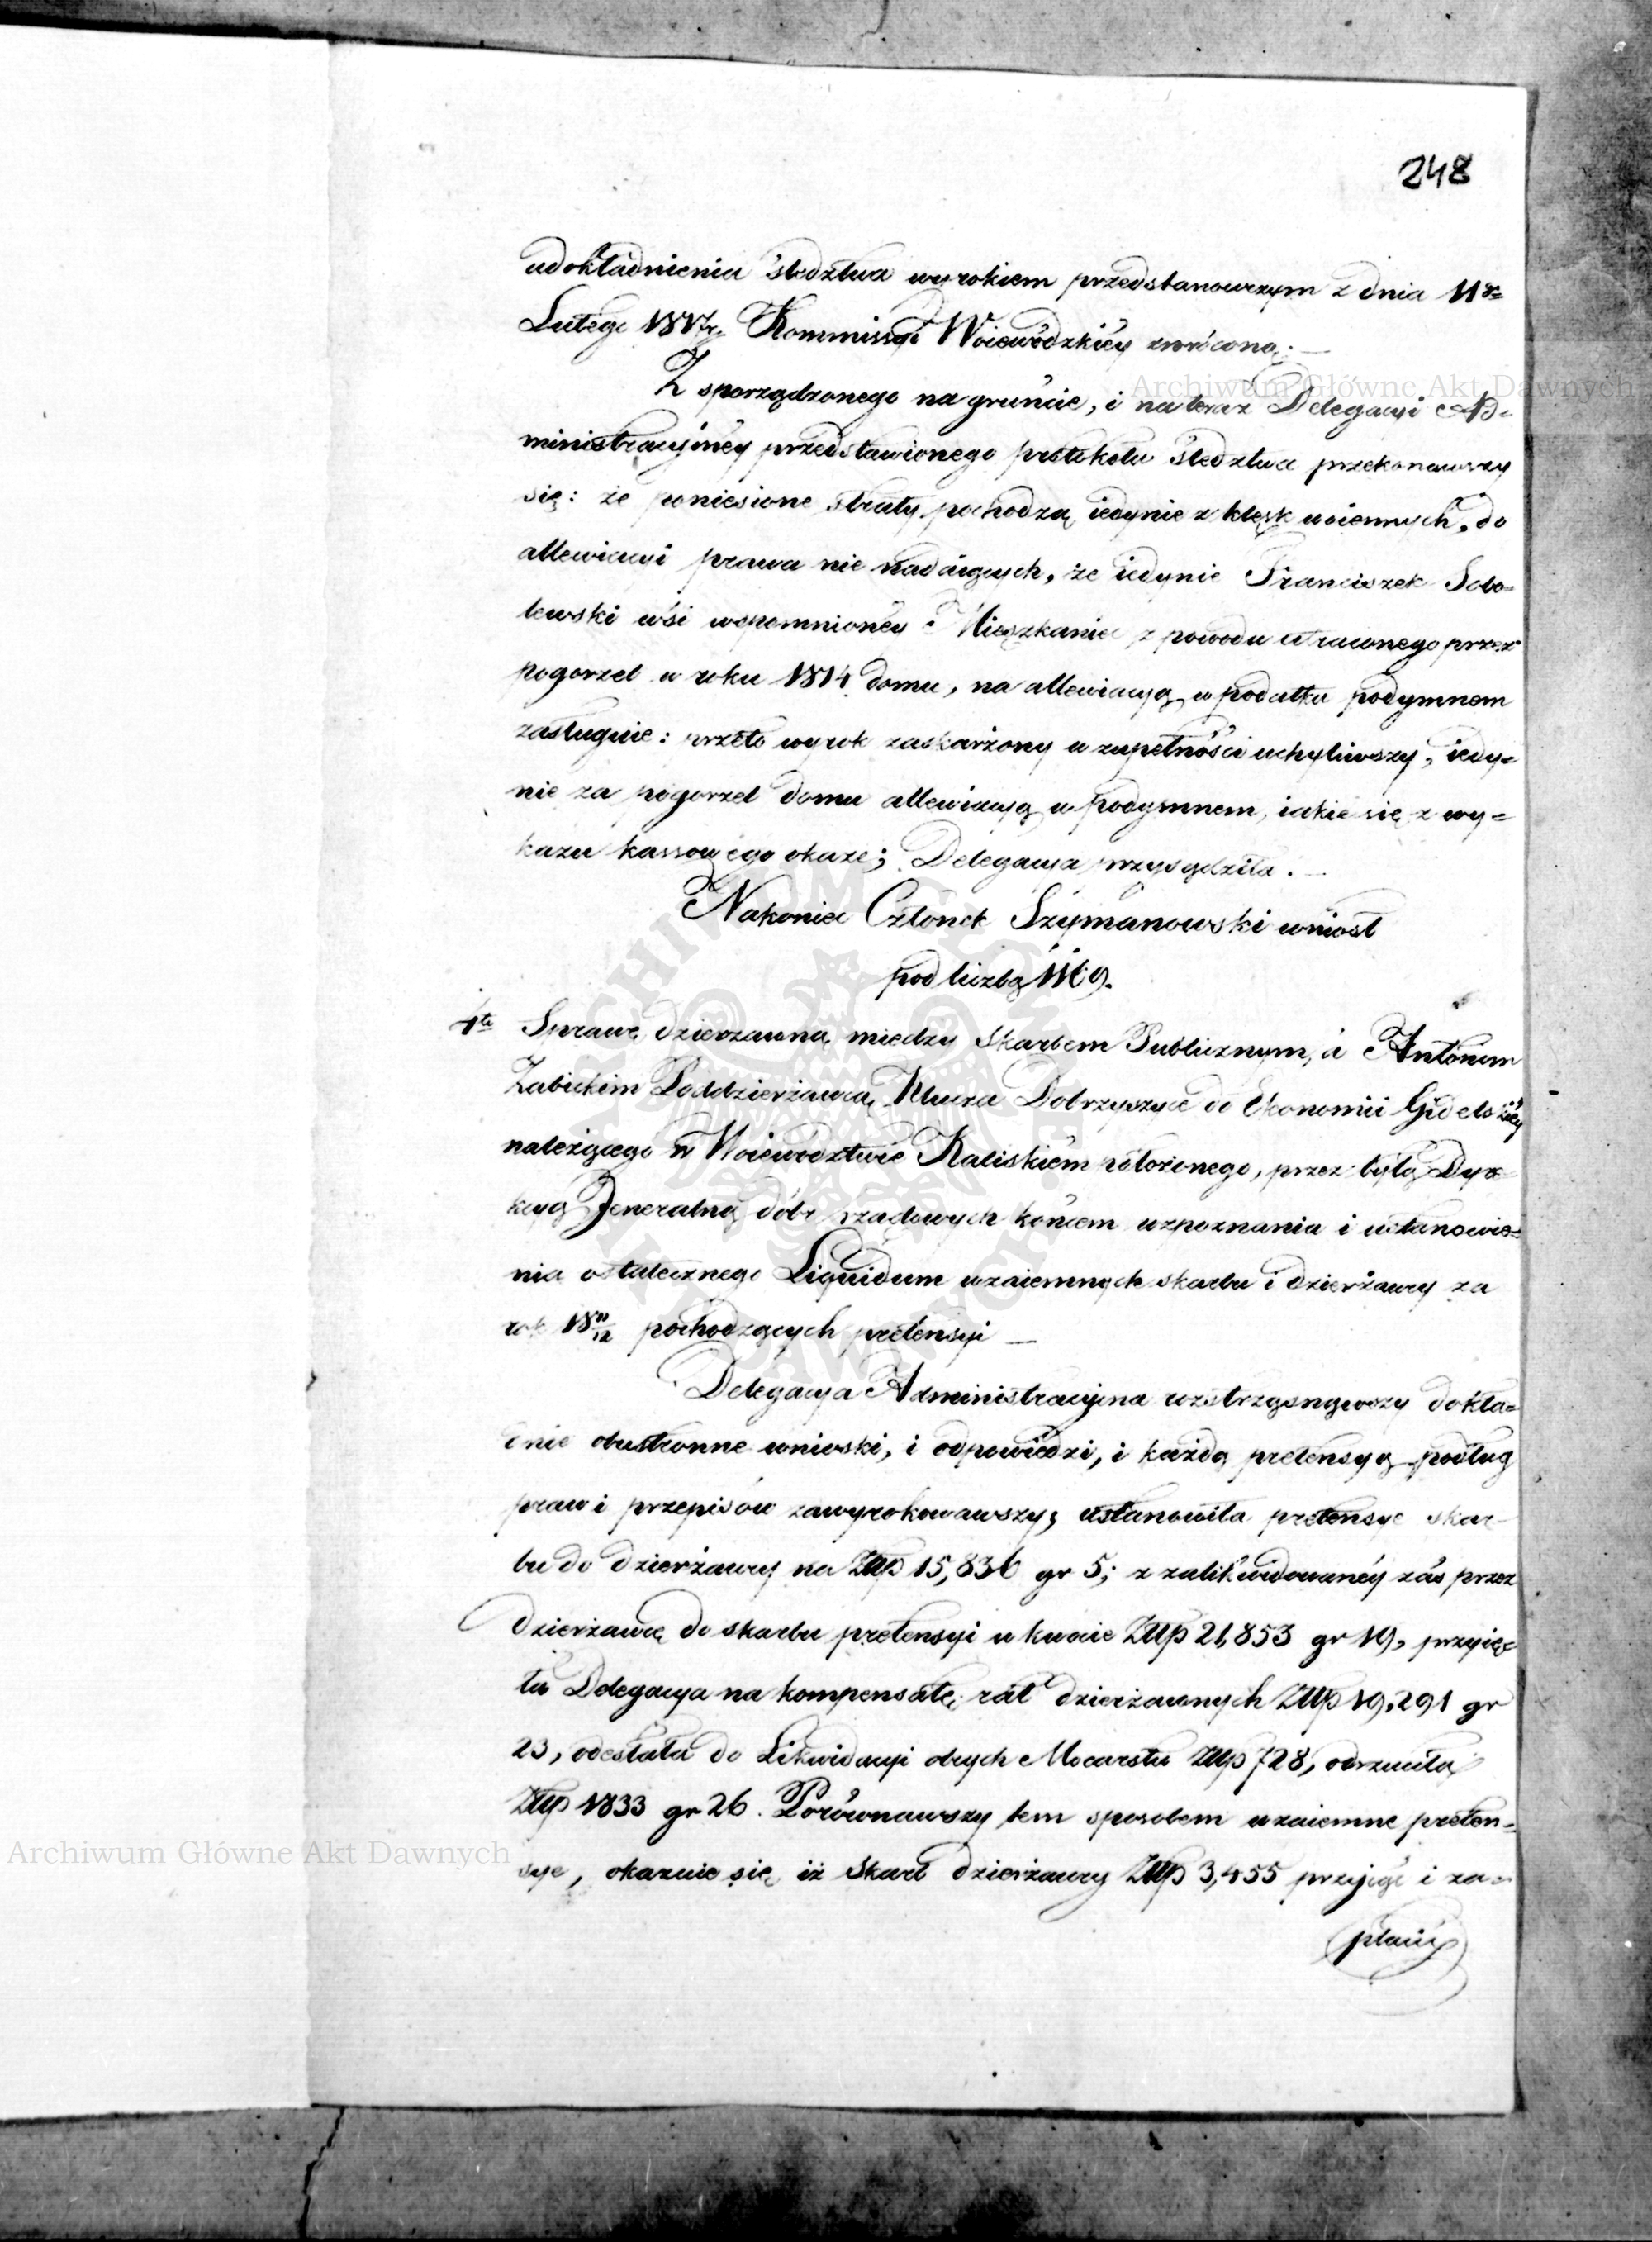 248
udokładnienia śledztwa wyrokiem przedstanowczym z dnia 11go
Lutego 1817r. Kommissyi Woiewódzkiéy zwróconą. —
Z sporządzonego na gruncie, i na teraz Delegacyi Ad=
ministracyjnéy przedstawionego protokołu śledztwa przekonawszy
się: że poniesione straty pochodzą iedynie z klęsk woiennych, do
allewiacyi prawa nie nadaiących, że iedynie Franciszek Sobo=
lewski wsi wspomnionéy Mieszkaniec z powodu utraconego przez
pogorzel w roku 1814 domu, na allewiacyą w podatku podymnem
zasługuie: przeto wyrok zaskarżony w zupełności uchyliwszy, iedy=
nie za pogorzel domu allewiacyą w podymnem, iakie się z wy=
kazu kassowego okaże; Delegacya przysądziła. —
Nakoniec Członek Szymanowski wniósł
pod liczbą 1169.
4te Sprawę dzierzawną między Skarbem Publicznym, a Antonim
Zabickim Poddzierżawcą Klucza Dobrzyszyce do Ekonomii Gidelskiéy
należącego w Woiewództwie Kaliskiem położonego, przez byłą Dyre=
kcyą Jeneralną dóbr rządowych końcem rozpoznania i ustanowie=
nia ostatecznego Liquidum wzaiemnych skarbu i dzierżawcy za
rok 18 11/12 pochodzących pretensyi —
Delegacya Administracyjna rozstrzgsnąwszy dokła=
dnie obustronne wnioski, i odpowiedzi, i każdą pretensyą podług
praw i przepisów zawyrokowawszy, ustanowiła pretensye skar=
bu do dzierżawcy na Złlp 15,836 gr 5; z zalikwidowanéy zaś przez
dzierżawcę do skarbu pretensyi w kwocie Złlp 21,853 gr 19, przyię=
ła Delegacya na kompensatę rat dzierżawnych Złlp 19,291 gr
23, odesłała do Likwidacyi obcych Mocarstw Złlp 728, odrzuciła
Złlp 1833 gr 26. Porównawszy tem sposobem wzaiemne preten=
sye, okazuie się iż Skarb dzierżawcy Złlp 3,455 przyjąć i za=
płacić
Archiwum Główne Akt Dawnych
Archiwum Główne Akt Dawnych
ARCHIWUM GŁÓWNE AKT DAWNYCH